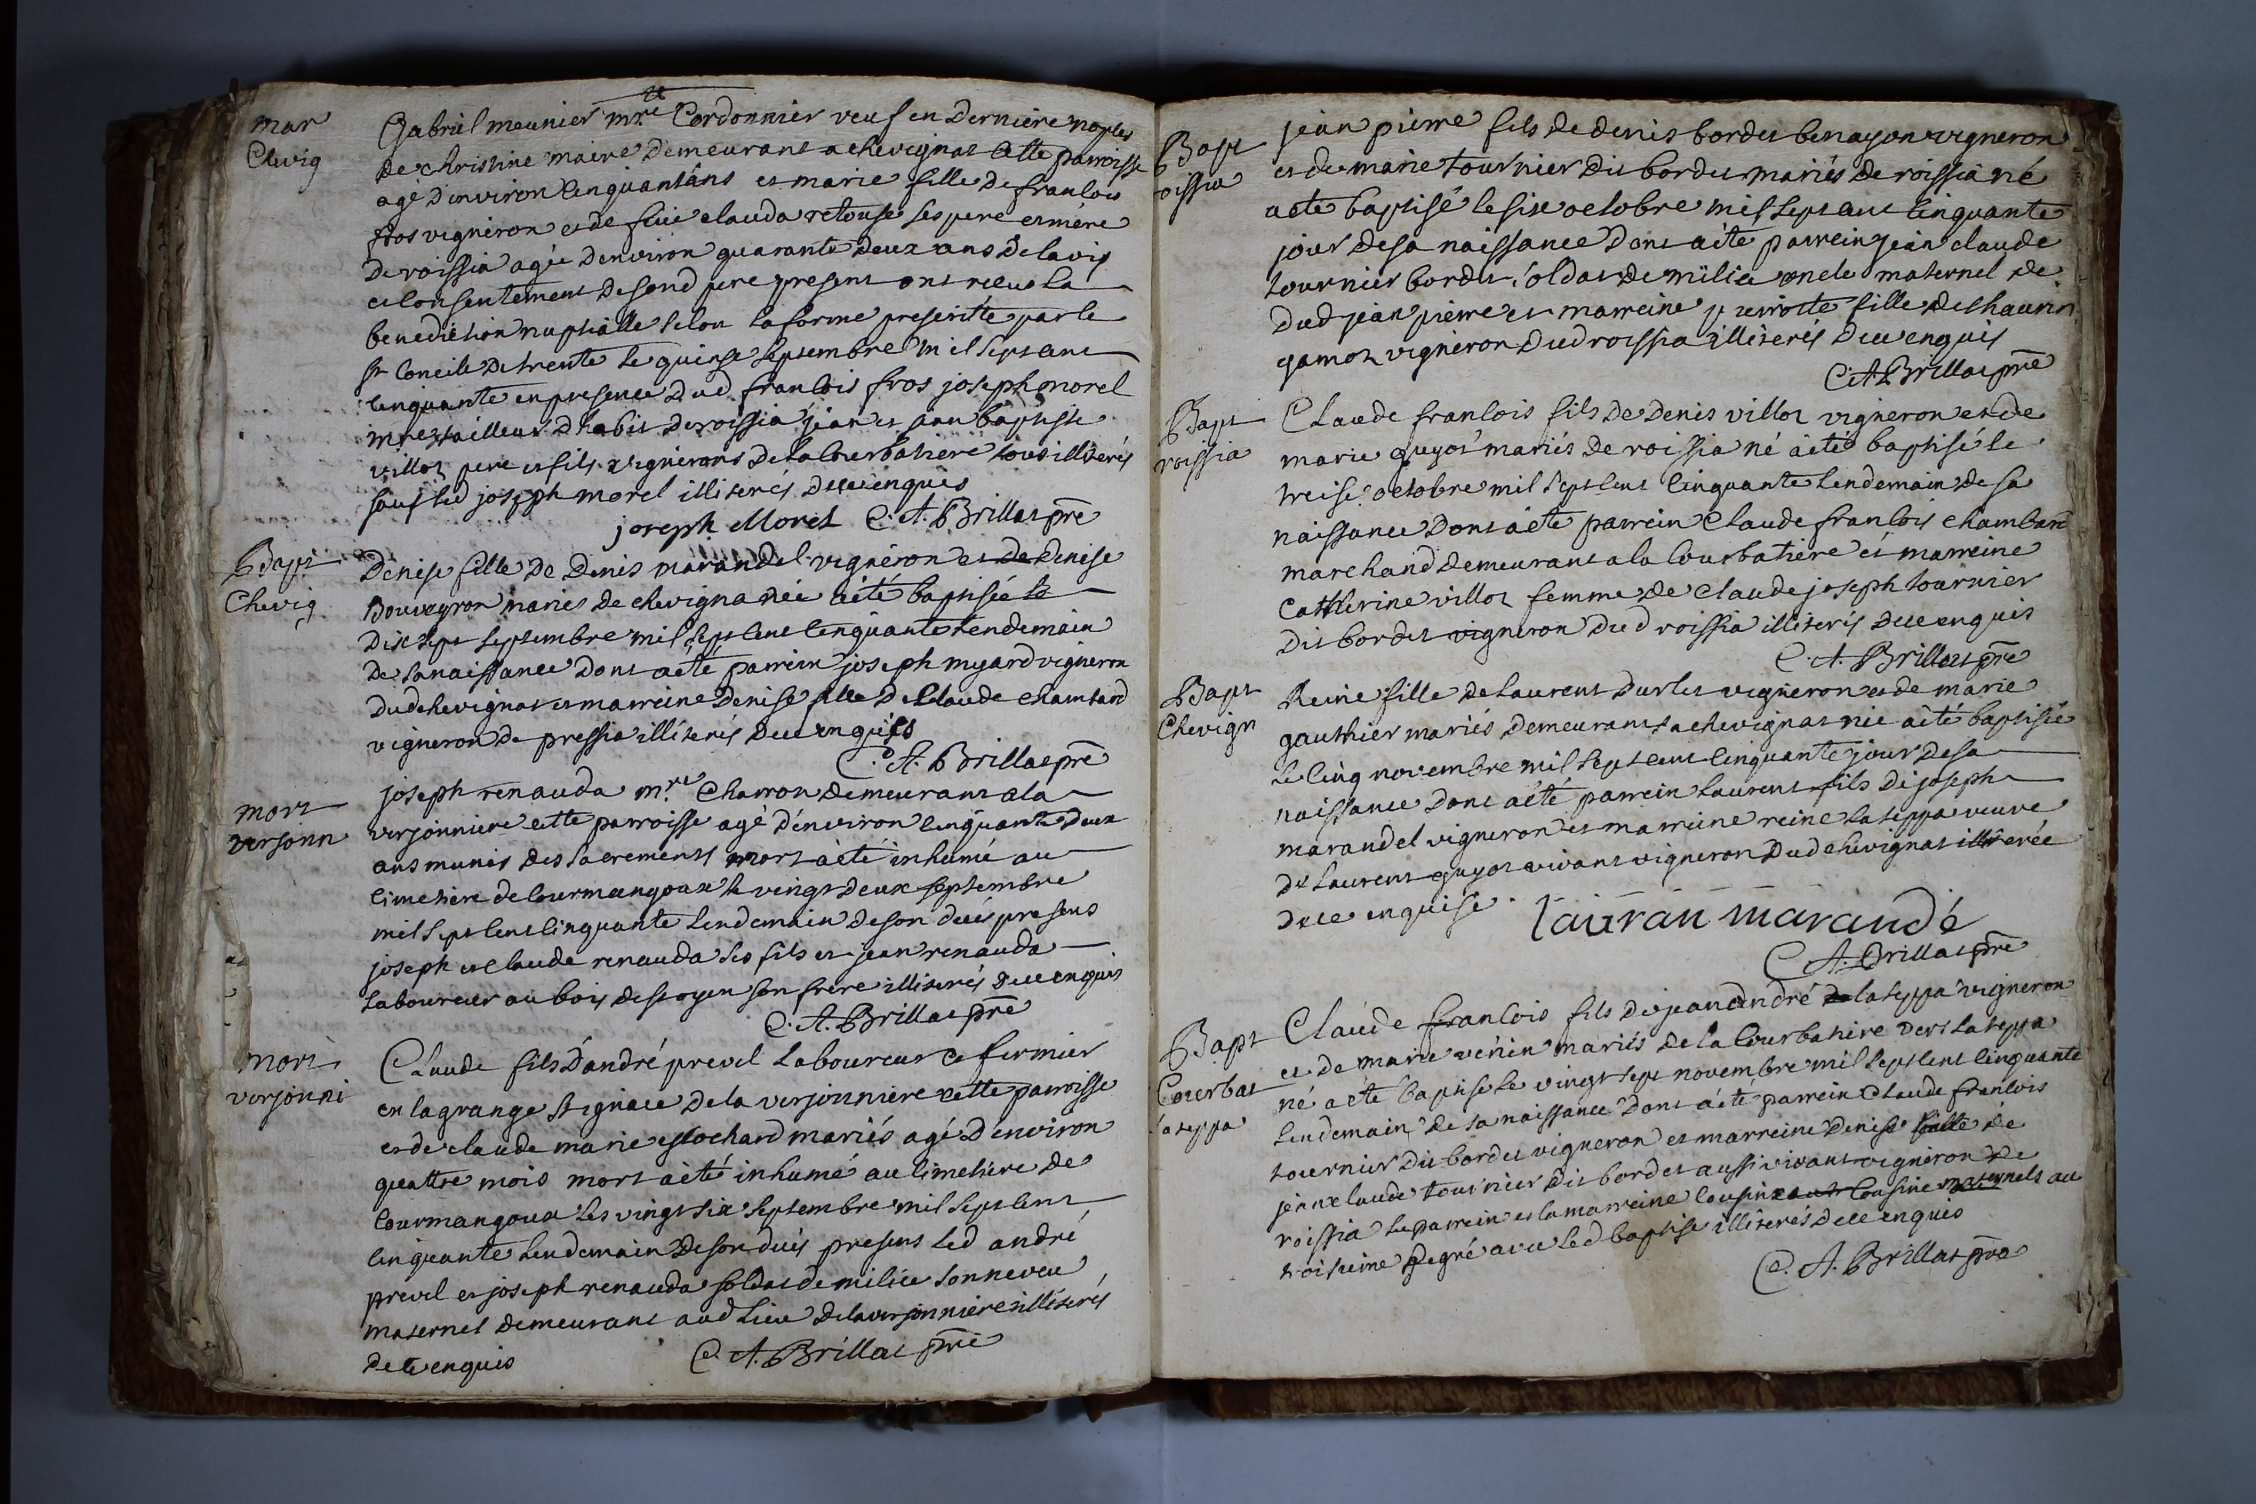 mar
Chevig
Gabriel meunier mre Cordonnier veuf en Derniere noples
de christine maire Demeurant a chevignat Cette parroisse
agé D'environ Cinquant'ans et marie fille De francois
fros vigneron et de fûe clauda retouse ses pere et mére
De roissia agée D'environ quarante Deux ans De lavis
et Consentement De sond pere present ont reçus la
benediction nuptialle selon la forme prescritte par le
st Concile De trente le quinze septembre mil sept cent
Cinquante en presence Dud francois fros joseph morel
mre tailleur D'habit De roissia jean et jean baptiste
villot pere et fils vignerons De la Courbatiere tous illiterés
sauf led joseph morel illiterés De ce enquis
joseph Morel C. A. Brillat pre
Bapt
Chevig
Denise fille De Denis marandel vigneron et de Denise
Bouveyron mariés De chevigna née a été baptisée le
Dix sept septembre mil sept cent Cinquante lendemain
De sa naissance Dont a eté parrein joseph myard vigneron
Dud chevignat et marreine Denise fille De Claude chambard
vigneron De pressia illiterés De ce enquis
C. A. Brillat pre
mort
versonn
joseph renauda mre Charron Demeurant a la
verjonniere cette parroisse agé d'environ Cinquante Deux
ans munis des sacrements mort a été inhumé au
Cimetière de Courmangoux le vingt Deux septembre
mil sept Cent Cinquante lendemain De son décès presens
joseph et Claude renauda ses fils et jean renauda
laboureur au bois De stoyen son frere illiterés De ce enquis
C. A. Brillat pre
mort
verjonni
Claude fils D'andré prevel laboureur et fermier
en la grange st ignace De la verjonniere cette parroisse
et de claude marie Mochard mariés agé D'environ
quattre mois mort a été inhumé au Cimetiere De
Courmangoux les vingt six septembre mil sept Cent
Cinquante lendemain De son décès presens led andré
prevel et joseph renauda soldat de milice son neveu
maternel Demeurant aud lieu De la verjonniere illiterés
de ce enquis C. A. Brillat pre
Bapt
roissia
jean pierre fils de denis bordet benayon vigneron
et de marie tournier Dit bordet mariés De roissia né
a eté baptisé le six octobre mil sept cent Cinquante
jour De sa naissance Dont a été parrein jean claude
tournier bordet soldat De milice oncle maternel De
Dud jean pierre et marreine pierrotte fille De
gamot vigneron Dud roissia illiterés De ce enquis
C. A. Brillat pre
Bapt
roissia
Claude francois fils De Denis villot vigneron et De
marie guyot mariés De roissia né a été baptisé le
treise octobre mil sept Cent Cinquante lendemain De sa
naissance Dont a eté parrein Claude francois chambard
marchand Demeurant a la Courbatiere et marreine
Catherine villot femme De Claude joseph tournier
Dit bordet vigneron Dud roissia illiterés De ce enquis
C. A. Brillat pre
Bapt
Chevign
Reine fille De Laurent Durlet vigneron et de marie
gauthier mariés Demeurant a chevignat née a été baptisée
le Cinq novembre mil sept cent Cinquante jour De sa
naissance Dont a été parrein laurent fils De joseph
marandel vigneron et marreine reine lateppa veuve
De laurent guyot vivant vigneron Dud chevignat illiterée
De ce enquise.
lauran marandé
C. A. Brillat pre
Bapt
Courbat
lateppa
Claude francois fils De jean andré lateppa vigneron
et de marie venin mariés De la Courbatiere Ders lateppa
né a été baptisé le vingt sept novembre mil sept Cent Cinquante
lendemain De sa naissance Dont a eté parrein Claude francois
tournier Dit bordet vigneron et marreine Denise fille De
jean claude tournier Dit bordet aussi vivant vigneron De
roissia le parrein et la marreine Cousin Cousine maternels au
troisieme Degré avec led baptisé illiterés De ce enquis
C. A. Brillat pre